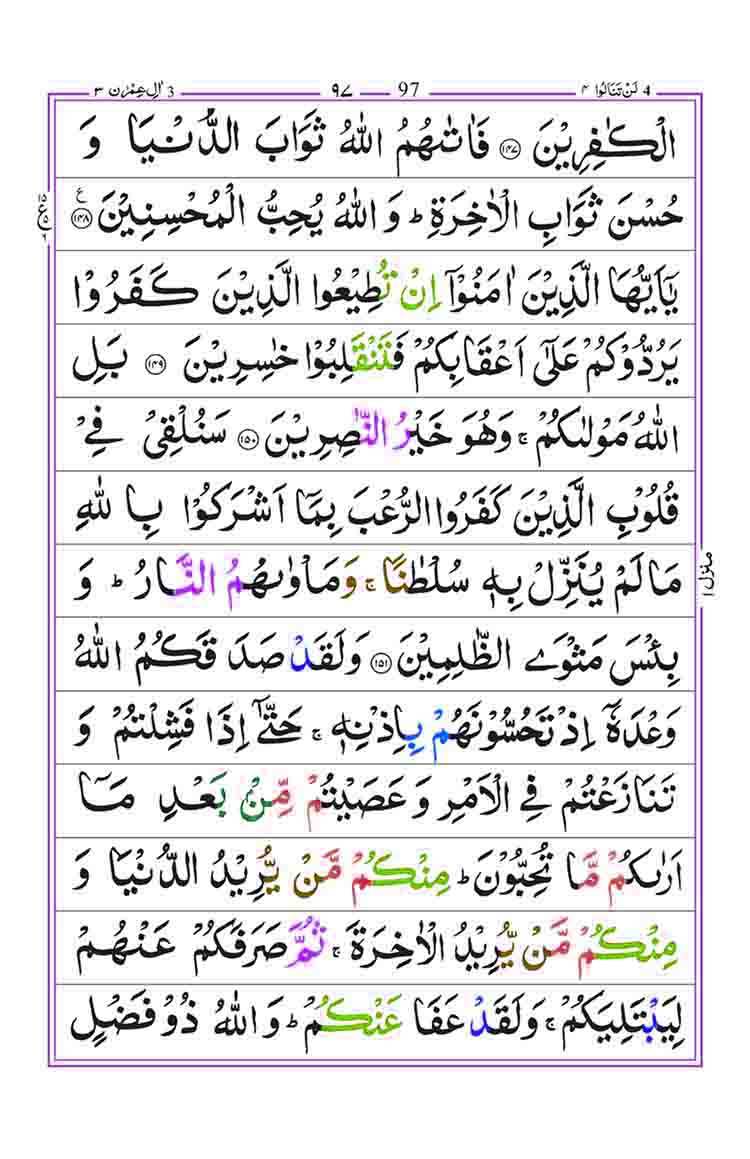 4 لَنْ تَنَالُوا ۴ 97 ۹۷ 3 اٰلِ عِمْرٰن ۳
الْكٰفِرِيْنَ ﴿۱۴۷﴾ فَاٰتٰىهُمُ اللّٰهُ ثَوَابَ الدُّنْيَا وَ
حُسْنَ ثَوَابِ الْاٰخِرَةِ ؕ وَ اللّٰهُ يُحِبُّ الْمُحْسِنِيْنَ ﴿۱۴۸﴾ ع
يٰۤاَيُّهَا الَّذِيْنَ اٰمَنُوْۤا اِنْ تُطِيْعُوا الَّذِيْنَ كَفَرُوْا
يَرُدُّوْكُمْ عَلٰۤى اَعْقَابِكُمْ فَتَنْقَلِبُوْا خٰسِرِيْنَ ﴿۱۴۹﴾ بَلِ
اللّٰهُ مَوْلٰىكُمْ ۚ وَهُوَ خَيْرُ النّٰصِرِيْنَ ﴿۱۵۰﴾ سَنُلْقِيْ فِيْ
قُلُوْبِ الَّذِيْنَ كَفَرُوا الرُّعْبَ بِمَاۤ اَشْرَكُوْا بِاللّٰهِ
مَا لَمْ يُنَزِّلْ بِهٖ سُلْطٰنًا ۚ وَمَاْوٰىهُمُ النَّارُ ؕ وَ
بِئْسَ مَثْوَى الظّٰلِمِيْنَ ﴿۱۵۱﴾ وَلَقَدْ صَدَقَكُمُ اللّٰهُ
وَعْدَهٗۤ اِذْ تَحُسُّوْنَهُمْ بِاِذْنِهٖ ۚ حَتّٰۤى اِذَا فَشِلْتُمْ وَ
تَنَازَعْتُمْ فِي الْاَمْرِ وَ عَصَيْتُمْ مِّنْۢ بَعْدِ مَاۤ
اَرٰىكُمْ مَّا تُحِبُّوْنَ ؕ مِنْكُمْ مَّنْ يُّرِيْدُ الدُّنْيَا وَ
مِنْكُمْ مَّنْ يُّرِيْدُ الْاٰخِرَةَ ۚ ثُمَّ صَرَفَكُمْ عَنْهُمْ
لِيَبْتَلِيَكُمْ ۚ وَلَقَدْ عَفَا عَنْكُمْ ؕ وَ اللّٰهُ ذُوْ فَضْلٍ
منزل ۱